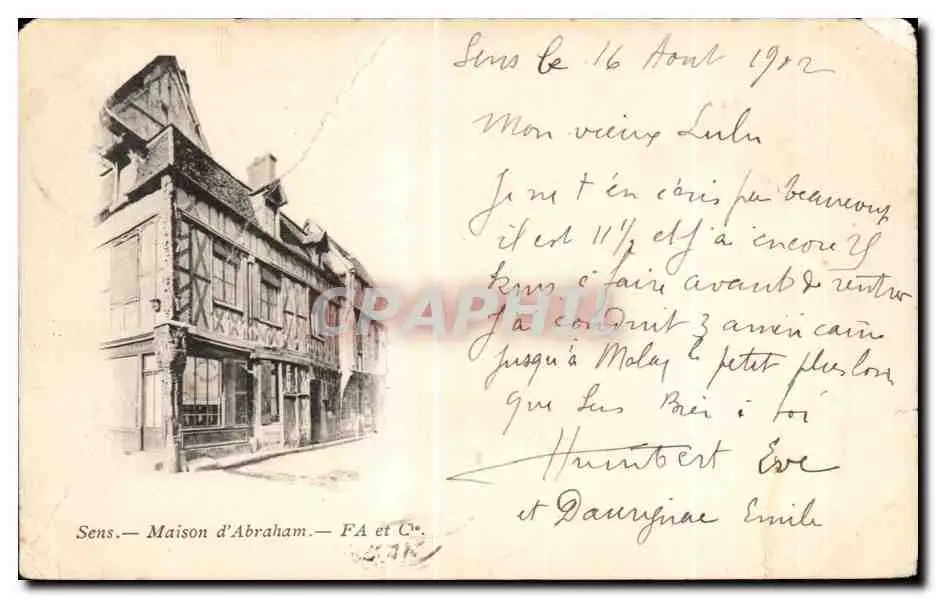 Sens le 16 Aout 1902
Mon vieux Lulu
Je ne t'en écris pas beaucoup
il est 11½ et j'ai encore 25
kms à faire avant de rentrer
J'a conduit 3 américains
jusqu'à Malay le petit plus loin
que Sens Bien à toi
Humbert Eve
et Daurignac Emile
Sens.— Maison d'Abraham.— FA et Cie.
CRAPHITE